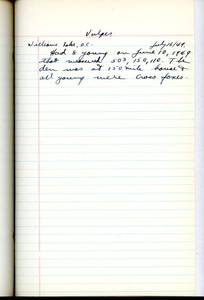 Vulpes
Williams Lake, B.C. July 16/49.
Had 8 young on June 10, 1949
that measured 507, 150, 110. The
den was at 150 mile house &
all young were Cross foxes.